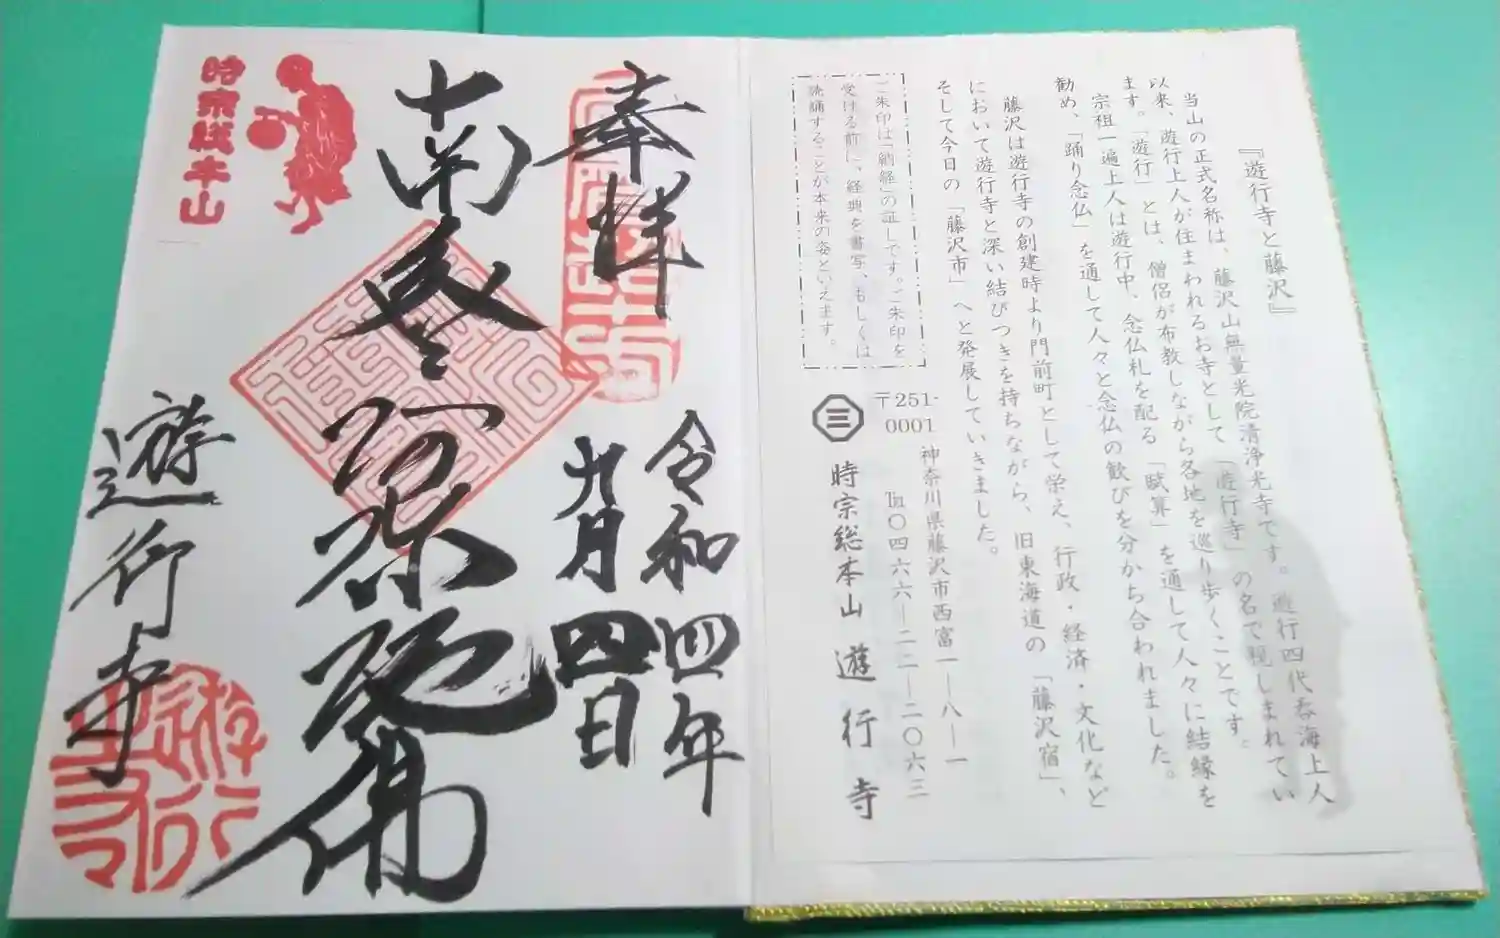 『遊行寺と藤沢』
当山の正式名称は、藤沢山無量光院清浄光寺です。遊行四代呑海上人
以来、遊行上人が住まわれるお寺として「遊行寺」の名で親しまれてい
ます。「遊行」とは、僧侶が布教しながら各地を巡り歩くことです。
宗祖一遍上人は遊行中、念仏札を配る「賦算」を通して人々に結縁を
勧め、「踊り念仏」を通して人々と念仏の歓びを分かち合われました。
藤沢は遊行寺の創建時より門前町として栄え、行政・経済・文化など
において遊行寺と深い結びつきを持ちながら、旧東海道の「藤沢宿」、
そして今日の「藤沢市」へと発展していきました。
ご朱印は「納経」の証しです。ご朱印を
受ける前に、経典を書写、もしくは
読誦することが本来の姿といえます。
〒251-
0001
神奈川県藤沢市西富一ー八ー一
℡〇四六六ー二二ー二〇六三
時宗総本山 遊行寺
奉拝
令和四年
九月四日
南無阿弥陀佛
時宗総本山
遊行寺